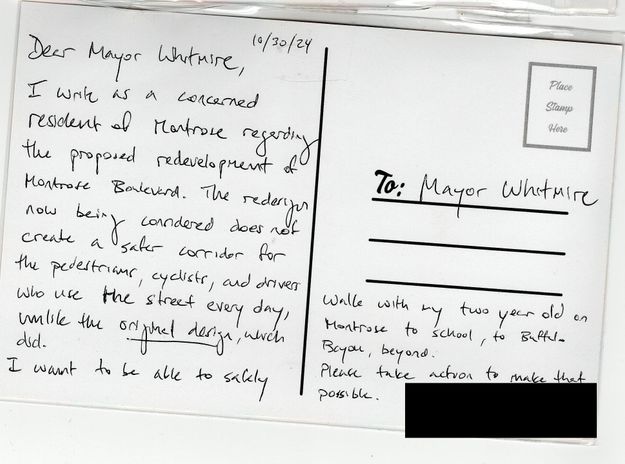 10/30/24
Dear Mayor Whitmire,
I write as a concerned
resident of Montrose regarding
the proposed redevelopment of
Montrose Boulevard. The redesign
now being considered does not
create a safer corridor for
the pedestrians, cyclists, and drivers
who use the street every day,
unlike the original design, which
did.
I want to be able to safely
Place
Stamp
Here
To: Mayor Whitmire
walk with my two year old on
Montrose to school, to Buffalo
Bayou, beyond.
Please take action to make that
possible.